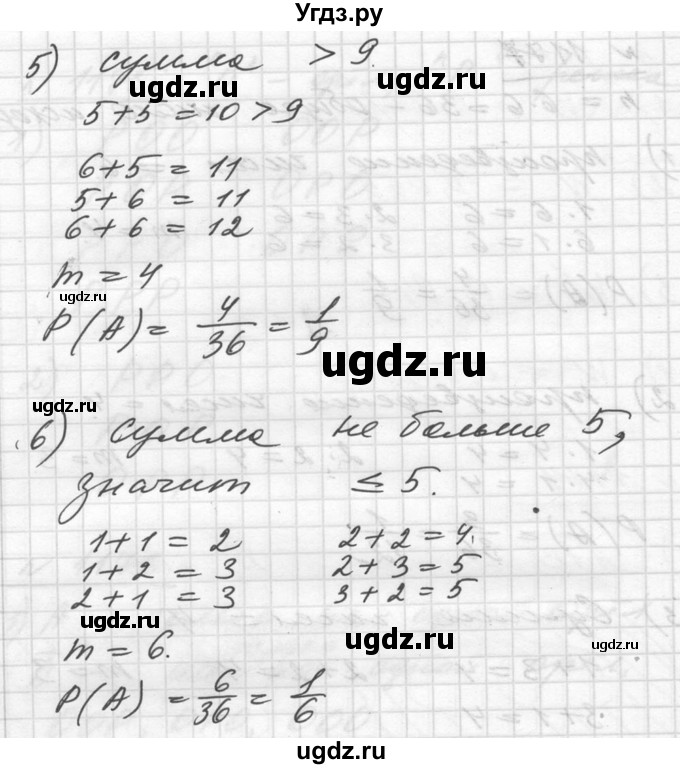 Угдз.ру
5) сумма > 9.
ugdz.ru ugdz.ru
5+5=10>9
6+5 = 11
5+6 = 11
6+6 = 12
ugdz.ru
m = 4
ugdz.ru
P(A)= 4/36 = 1/9
ugdz.ru
6) сумма не больше 5,
ugdz.ru
значит ≤ 5.
1+1 = 2 2+2 = 4.
1+2 = 3 2+3 = 5
2+1 = 3 3+2 = 5
ugdz.ru ugdz.ru ugdz.ru
m = 6.
P(A) = 6/36 = 1/6
ugdz.ru
ugdz.ru